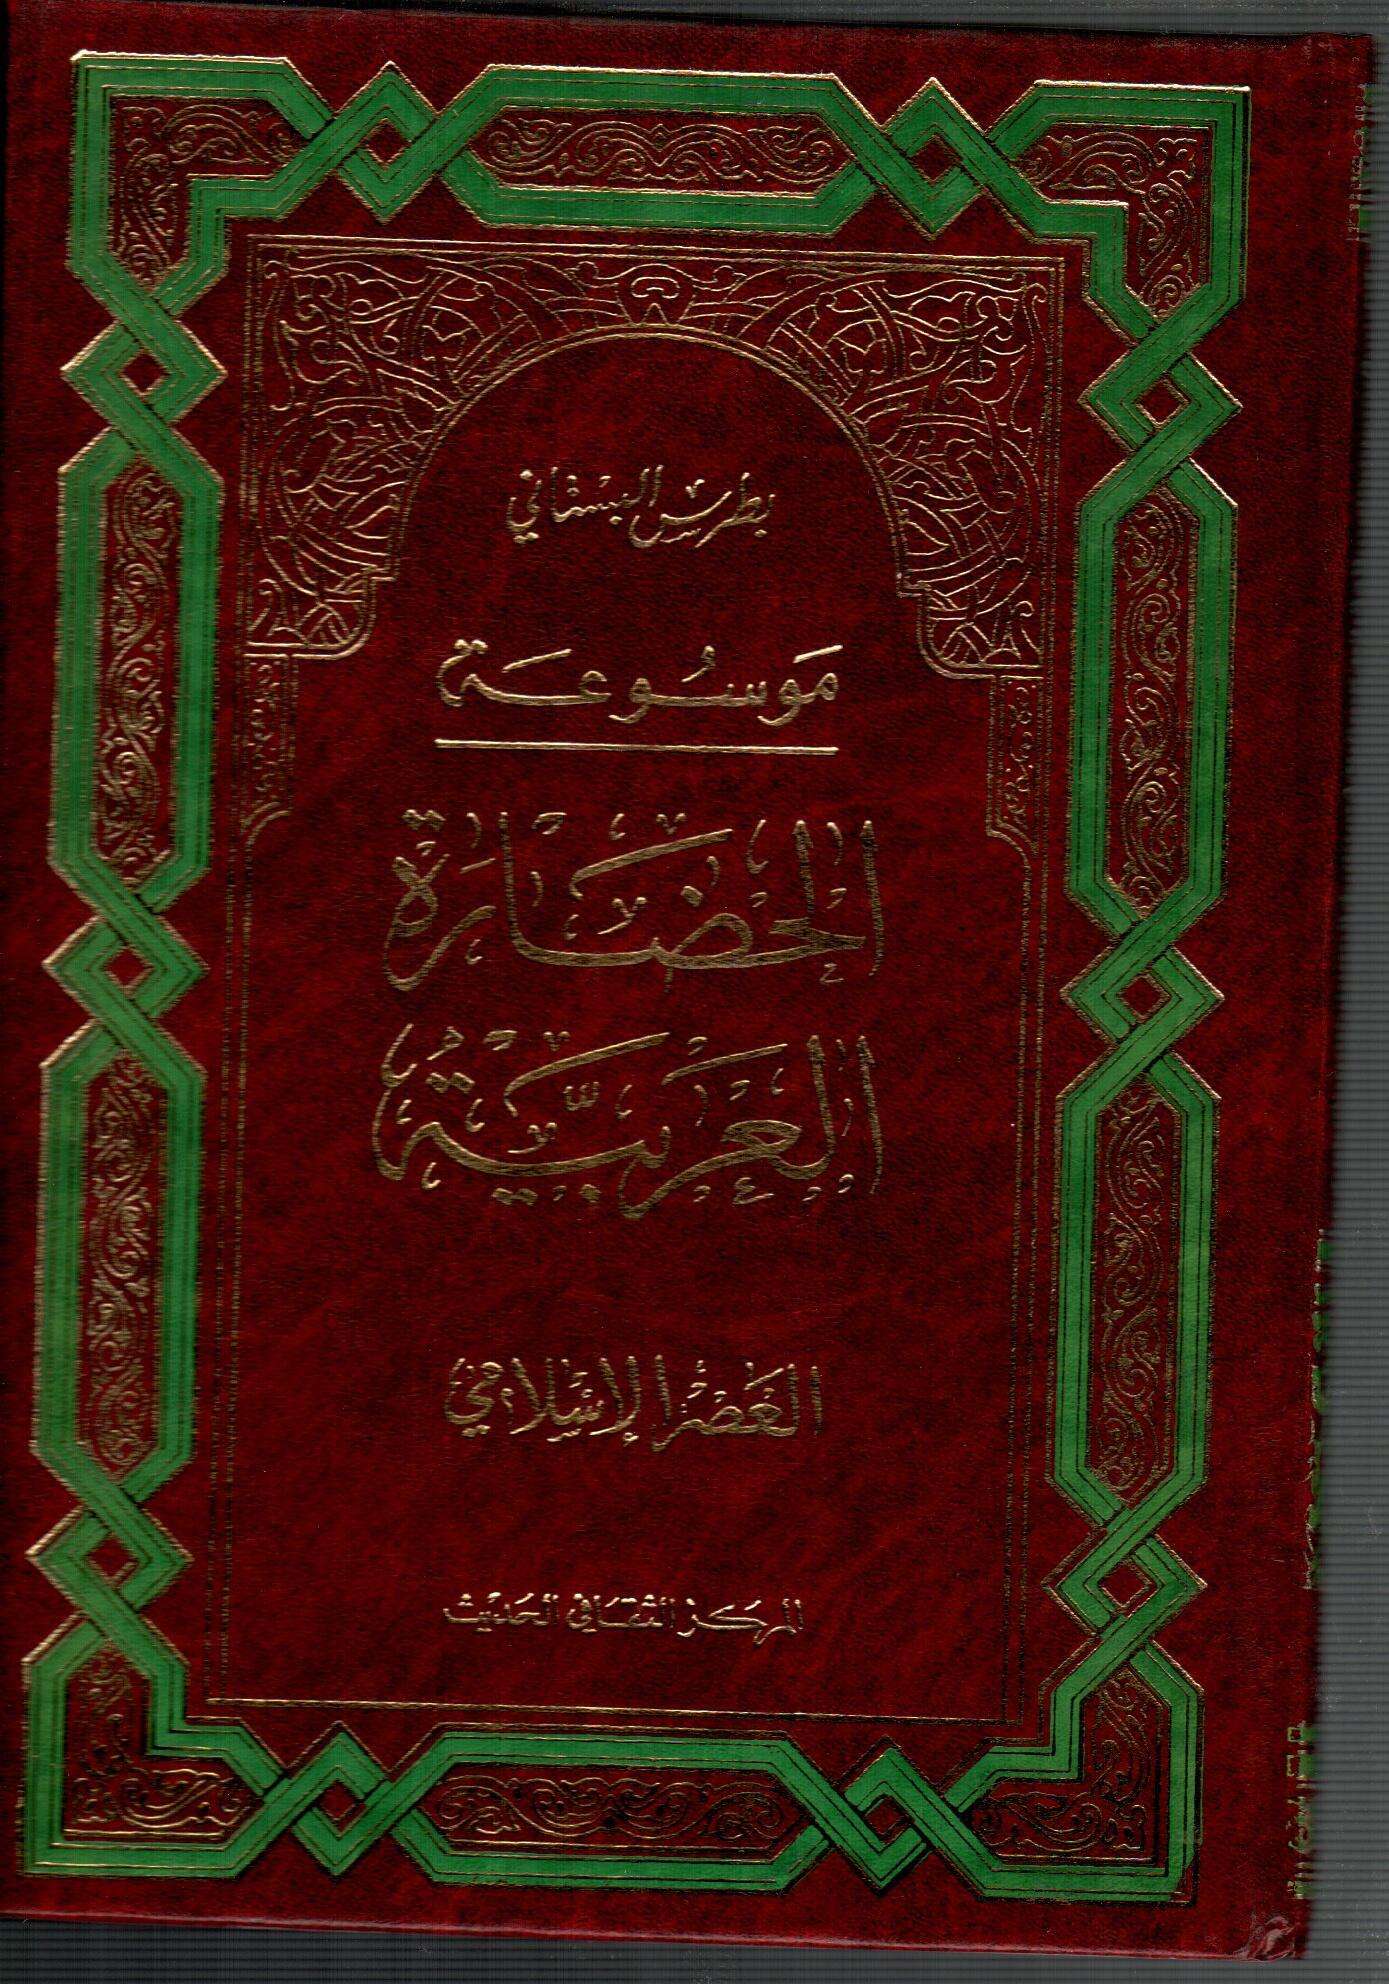 بطرس البستاني
مَوسُوعَة
الحضَارَة
العَرَبيَّة
العَصْر الإسْلَامِي
المركز الثقافي الحديث